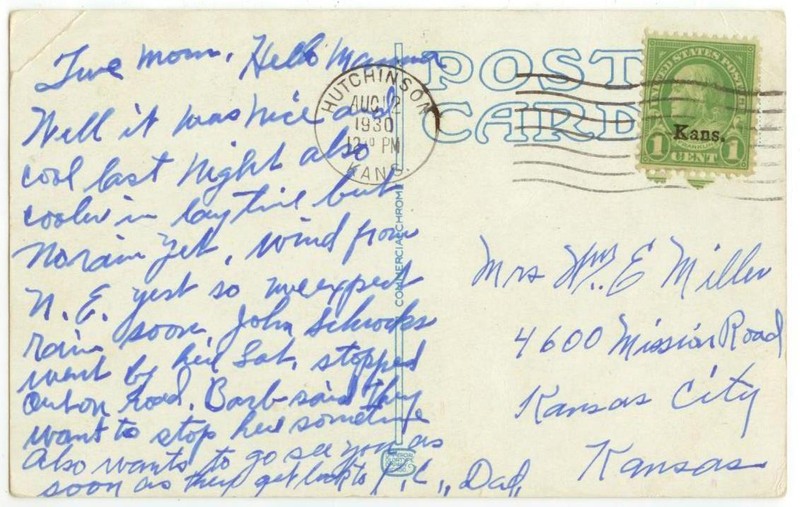 Tues morn. Hello Mamma
Well it was nice and
cool last night also
cooler in daytime but
no rain yet, wind from
N. E. yest so we expect
rain soon John Schrocks
went by here Sat, stopped
out on road. Barb said they
want to stop here sometime
also wants to go see you as
soon as they get back to K. C.,, Dad,
POST
CARD
HUTCHINSON
AUG 12
1930
12 30 PM
KANS.
UNITED STATES POSTAGE
FRANKLIN
Kans.
1 CENT 1
COMMERCIALCHROME
Mrs Wm. E Miller
4600 Mission Road
Kansas City
Kansas